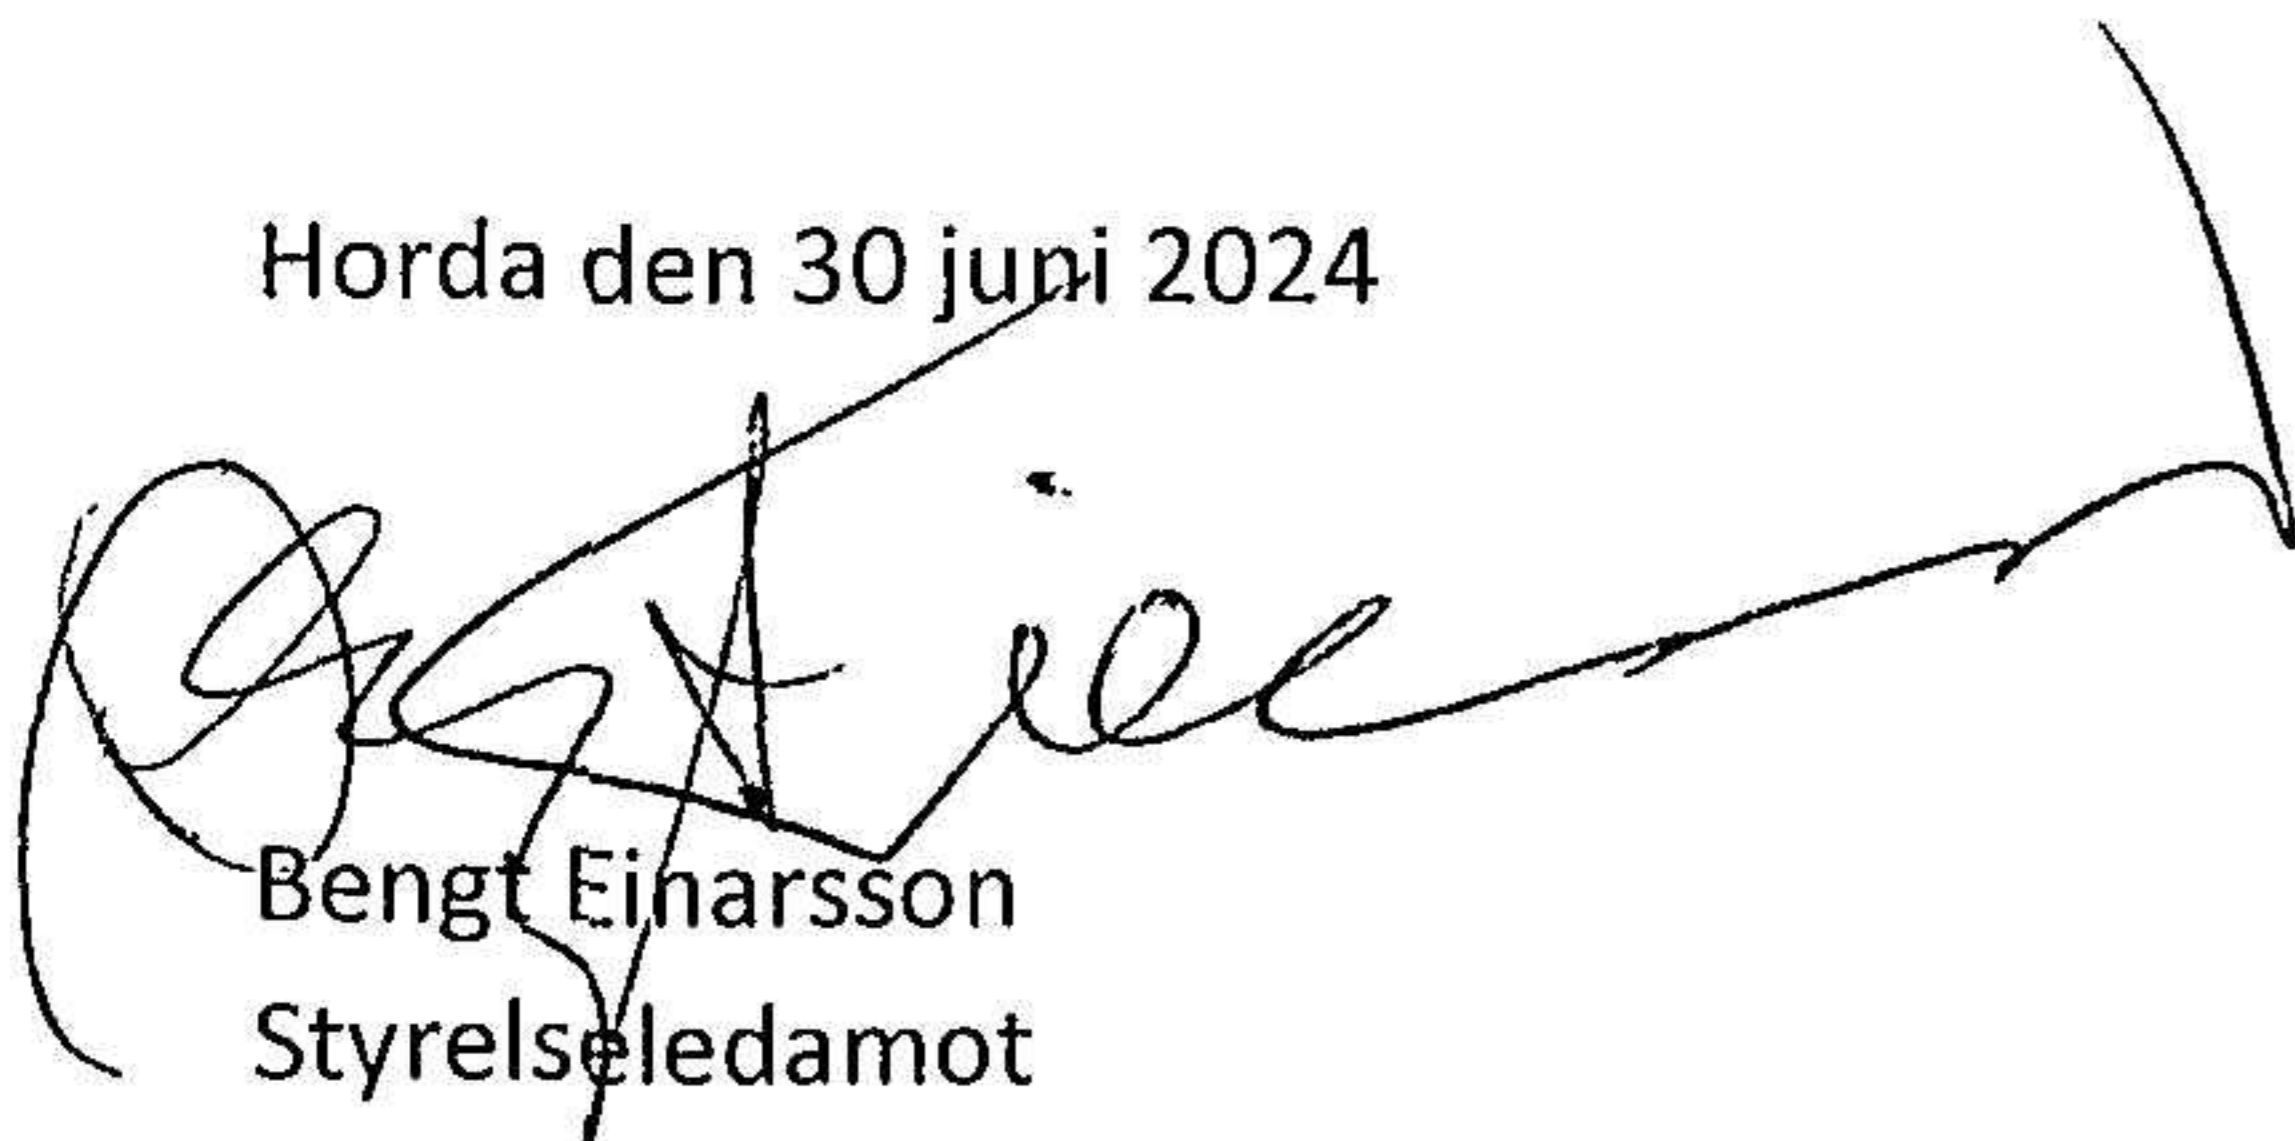 Horda den 30 juni 2024
Bengt Einarsson
Styrelseledamot